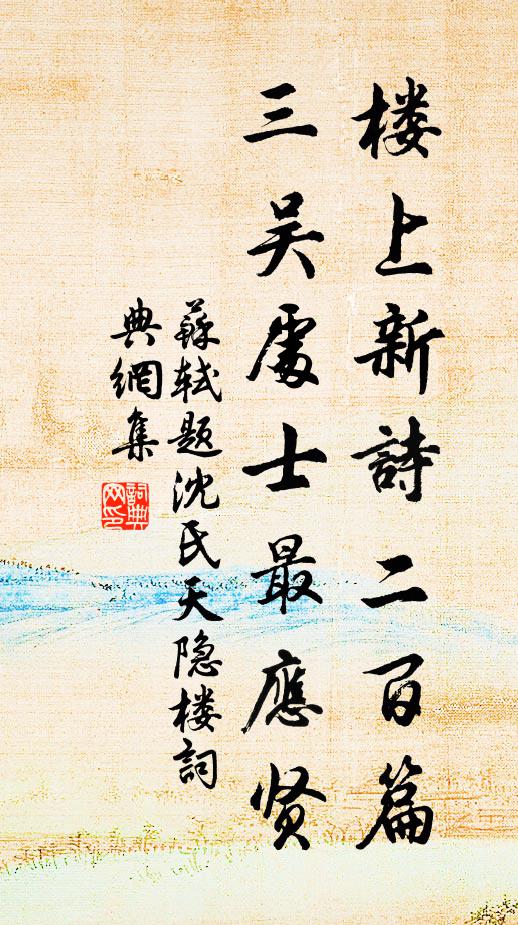 楼上新詩二百篇
三吴處士最應贤
蘇轼题沈氏天隐楼詞
典網集
詞典
网印